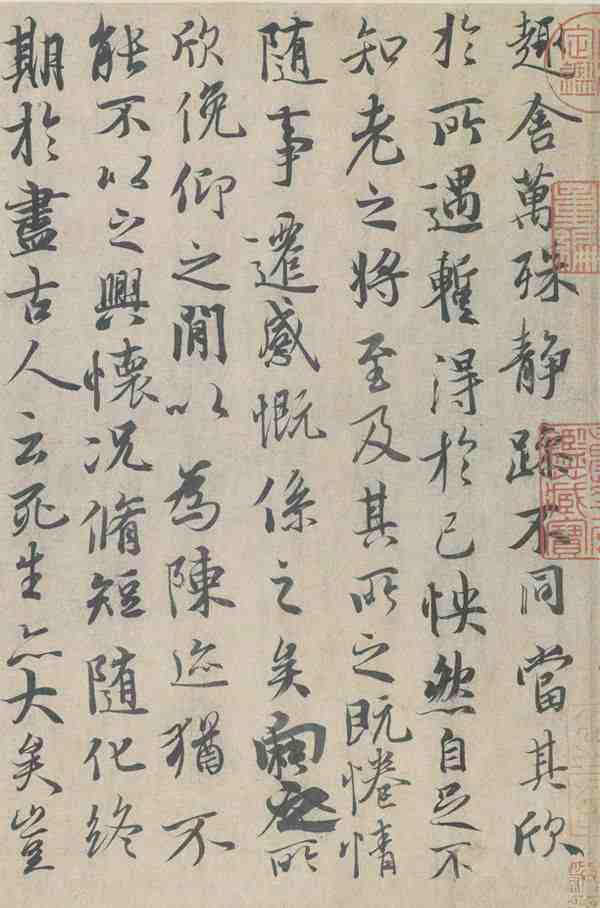 趣舍萬殊静躁不同當其欣
於所遇蹔得於己怏然自足不
知老之将至及其所之既惓情
随事遷感慨係之矣向之所
欣俛仰之閒以為陳迹猶不
能不以之興懷況脩短随化終
期於盡古人云死生亦大矣豈